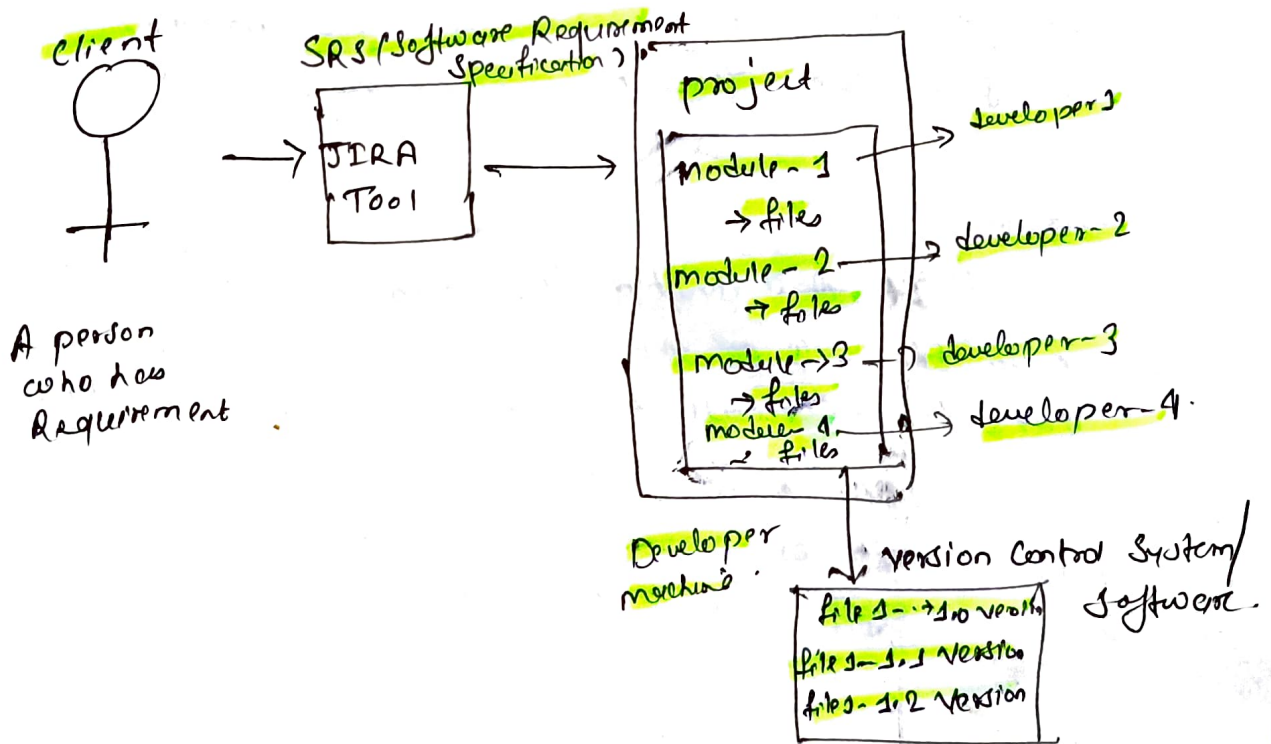 client
SRS (Software Requirement
Specification)
JIRA
Tool
A person
who has
Requirement
project
module - 1
→ files
module - 2
→ files
module → 3
→ files
module - 4
→ files
developer 1
developer - 2
developer - 3
developer - 4.
Developer
machine.
version Control System/
software.
file 1 - → 1.0 version
file 1 - 1.1 version
file 1 - 1.2 version